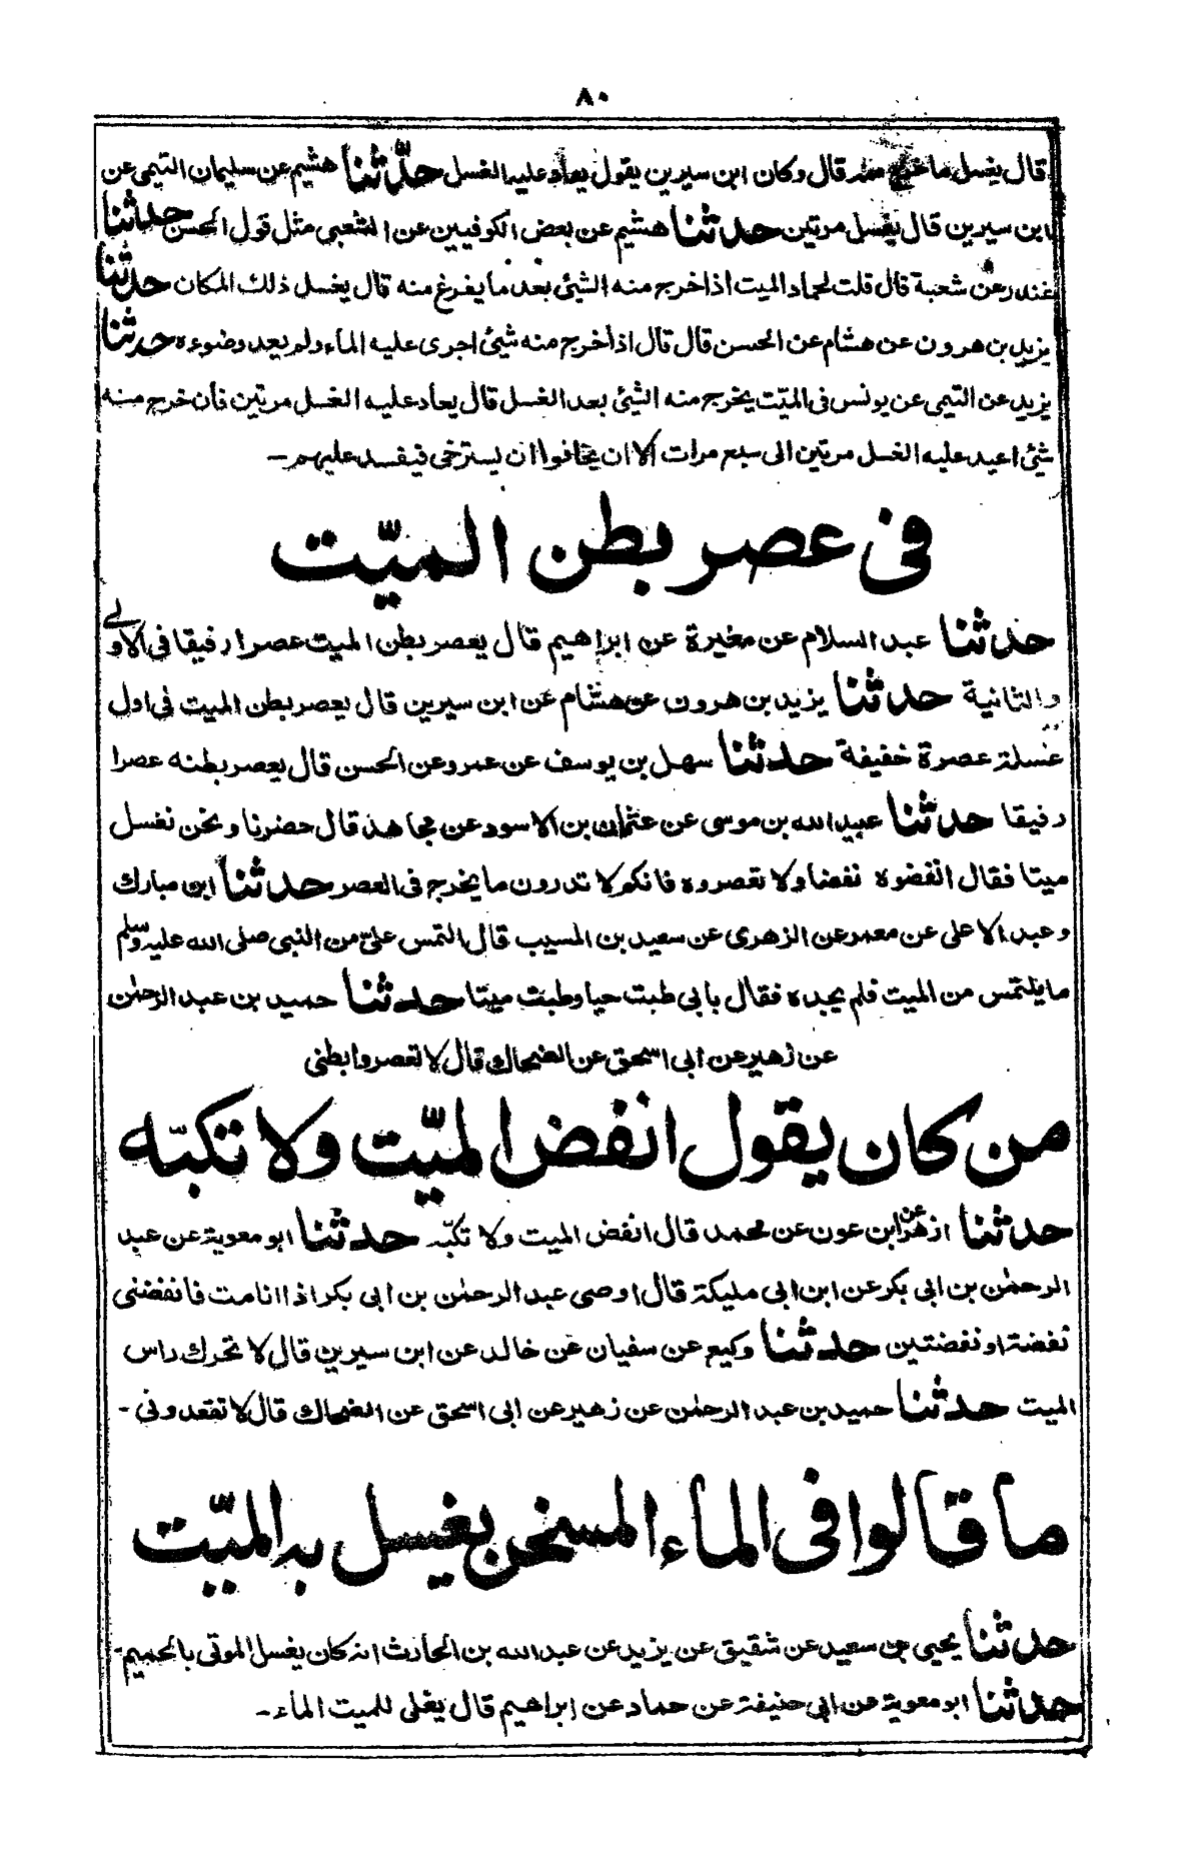 ٨٠
قال يغسل ما خرج منه قال وكان ابن سيرين يقول يعاد عليه الغسل حدّثنا هشيم عن سليمان التيمى عن
ابن سيرين قال يغسل مرتين حدثنا هشيم عن بعض الكوفيين عن الشعبى مثل قول الحسن حدثنا
غندر عن شعبة قال قلت لحماد الميت اذا خرج منه الشئى بعد ما يفرغ منه قال يغسل ذلك المكان حدثنا
يزيد بن هرون عن هشام عن الحسن قال قال اذا خرج منه شيئ اجرى عليه الماء ولم يعد وضوءه حدثنا
يزيد عن التيمى عن يونس فى الميّت يخرج منه الشئ بعد الغسل قال يعاد عليه الغسل مرتين فان خرج منه
شيئ اعيد عليه الغسل مرتين الى سبع مرات الا ان يخافوا ان يسترخى فيفسد عليهم -
فى عصر بطن الميّت
حدثنا عبد السلام عن مغيرة عن ابراهيم قال يعصر بطن الميت عصرا رفيقا فى الاولى
والثانية حدثنا يزيد بن هرون عن هشام عن ابن سيرين قال يعصر بطن الميت فى اول
غسلة عصرة خفيفة حدثنا سهل بن يوسف عن عمرو عن الحسن قال يعصر بطنه عصرا
رفيقا حدثنا عبيد الله بن موسى عن عثمان بن الاسود عن مجاهد قال حضرنا ونحن نغسل
ميتا فقال انفضوه نفضا ولا تعصروه فانكم لا تدرون ما يخرج فى العصر حدثنا ابن مبارك
وعبد الاعلى عن معمر عن الزهرى عن سعيد بن المسيب قال التمس علىّ من النبى صلى الله عليه وسلم
ما يلتمس من الميت فلم يجده فقال بابى طبت حيا وطبت ميتا حدثنا حميد بن عبد الرحمٰن
عن زهير عن ابى اسحق عن الضحاك قال لا تعصروا بطنى
من كان يقول انفض الميّت ولا تكبّه
حدثنا ازهر عن ابن عون عن محمد قال انفض الميت ولا تكبّه حدثنا ابو معوية عن عبد
الرحمٰن بن ابى بكر عن ابن ابى مليكة قال اوصى عبد الرحمٰن بن ابى بكر اذا انا مت فانفضنى
نفضة او نفضتين حدثنا وكيع عن سفيان عن خالد عن ابن سيرين قال لا تحرك راس
الميت حدثنا حميد بن عبد الرحمٰن عن زهير عن ابى اسحق عن الضحاك قال لا تقعدونى -
ما قالوا فى الماء المسخن يغسل به الميّت
حدثنا يحيى بن سعيد عن شقيق عن يزيد عن عبد الله بن الحارث انه كان يغسل الموتى بالحميم -
حدثنا ابو معوية عن ابى حنيفة عن حماد عن ابراهيم قال يغلى للميت الماء -